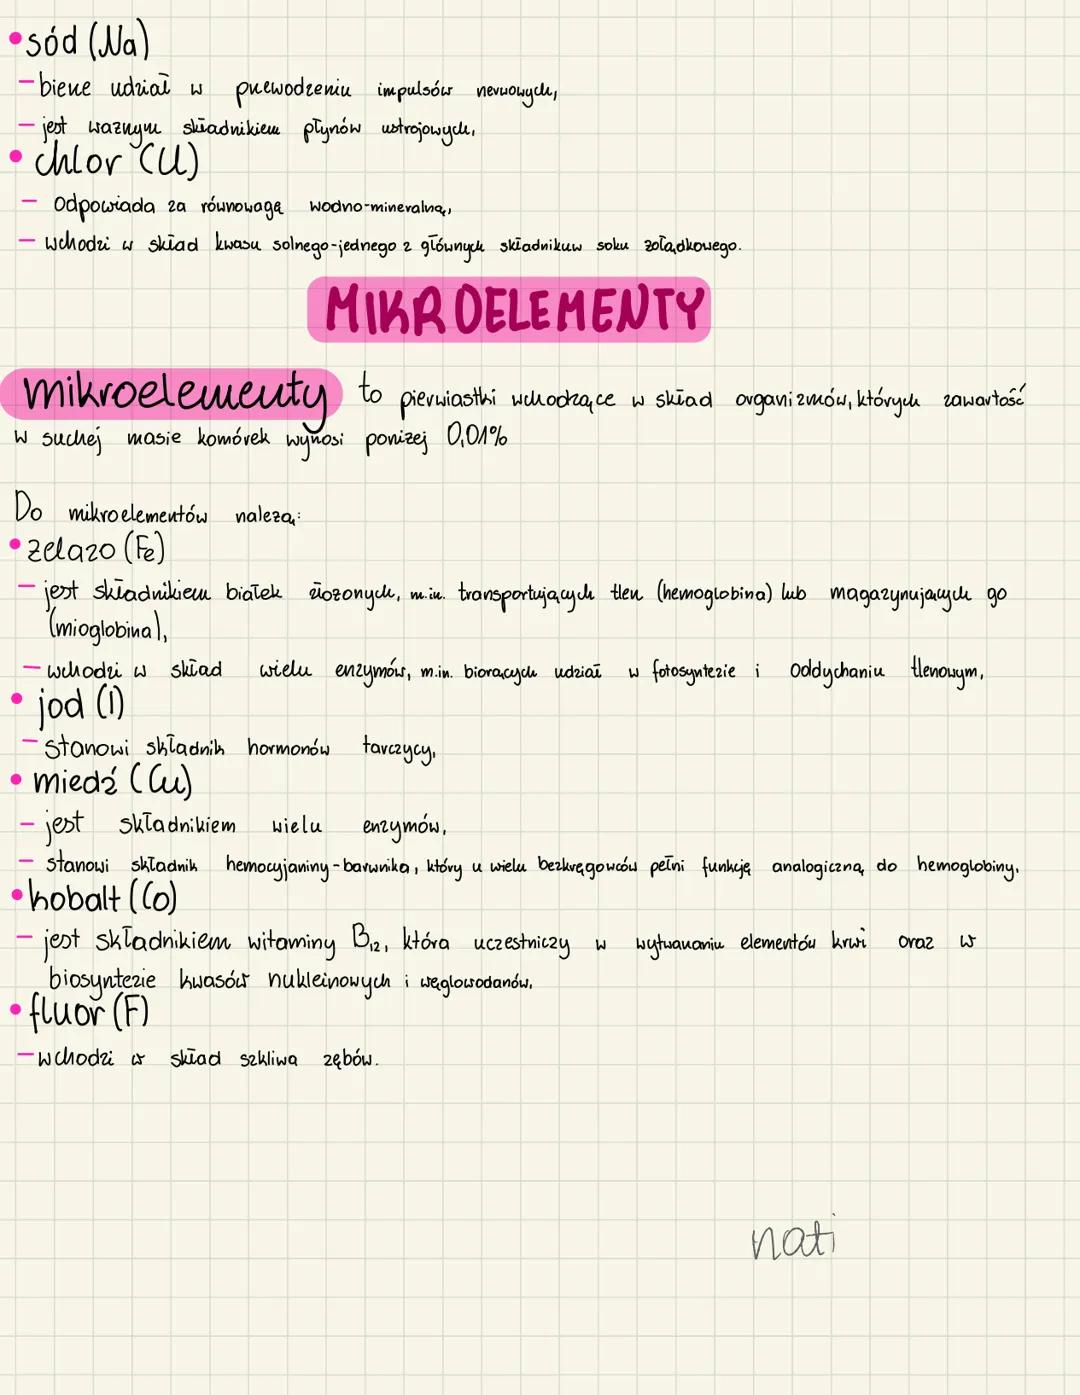 • sód (Na)
- bierze udział w przewodzeniu impulsów nerwowych,
- jest ważnym składnikiem płynów ustrojowych,
• chlor (Cl)
- odpowiada za równowagę wodno-mineralną,
- wchodzi w skład kwasu solnego-jednego z głównych składnikuw soku żołądkowego.
MIKROELEMENTY
mikroelementy to pierwiastki wchodzące w skład organizmów, których zawartość
w suchej masie komórek wynosi poniżej 0,01%
Do mikroelementów należą:
• żelazo (Fe)
- jest składnikiem białek złożonych, m.in. transportujących tlen (hemoglobina) lub magazynujących go
(mioglobina),
- wchodzi w skład wielu enzymów, m.in. biorących udział w fotosyntezie i oddychaniu tlenowym,
• jod (I)
- stanowi składnik hormonów tarczycy,
• miedź (Cu)
- jest składnikiem wielu enzymów,
- stanowi składnik hemocyjaniny-barwnika, który u wielu bezkręgowców pełni funkcję analogiczną do hemoglobiny.
• kobalt (Co)
- jest składnikiem witaminy B12, która uczestniczy w wytwarzaniu elementów krwi oraz w
biosyntezie kwasów nukleinowych i węglowodanów.
• fluor (F)
- wchodzi w skład szkliwa zębów.
nati